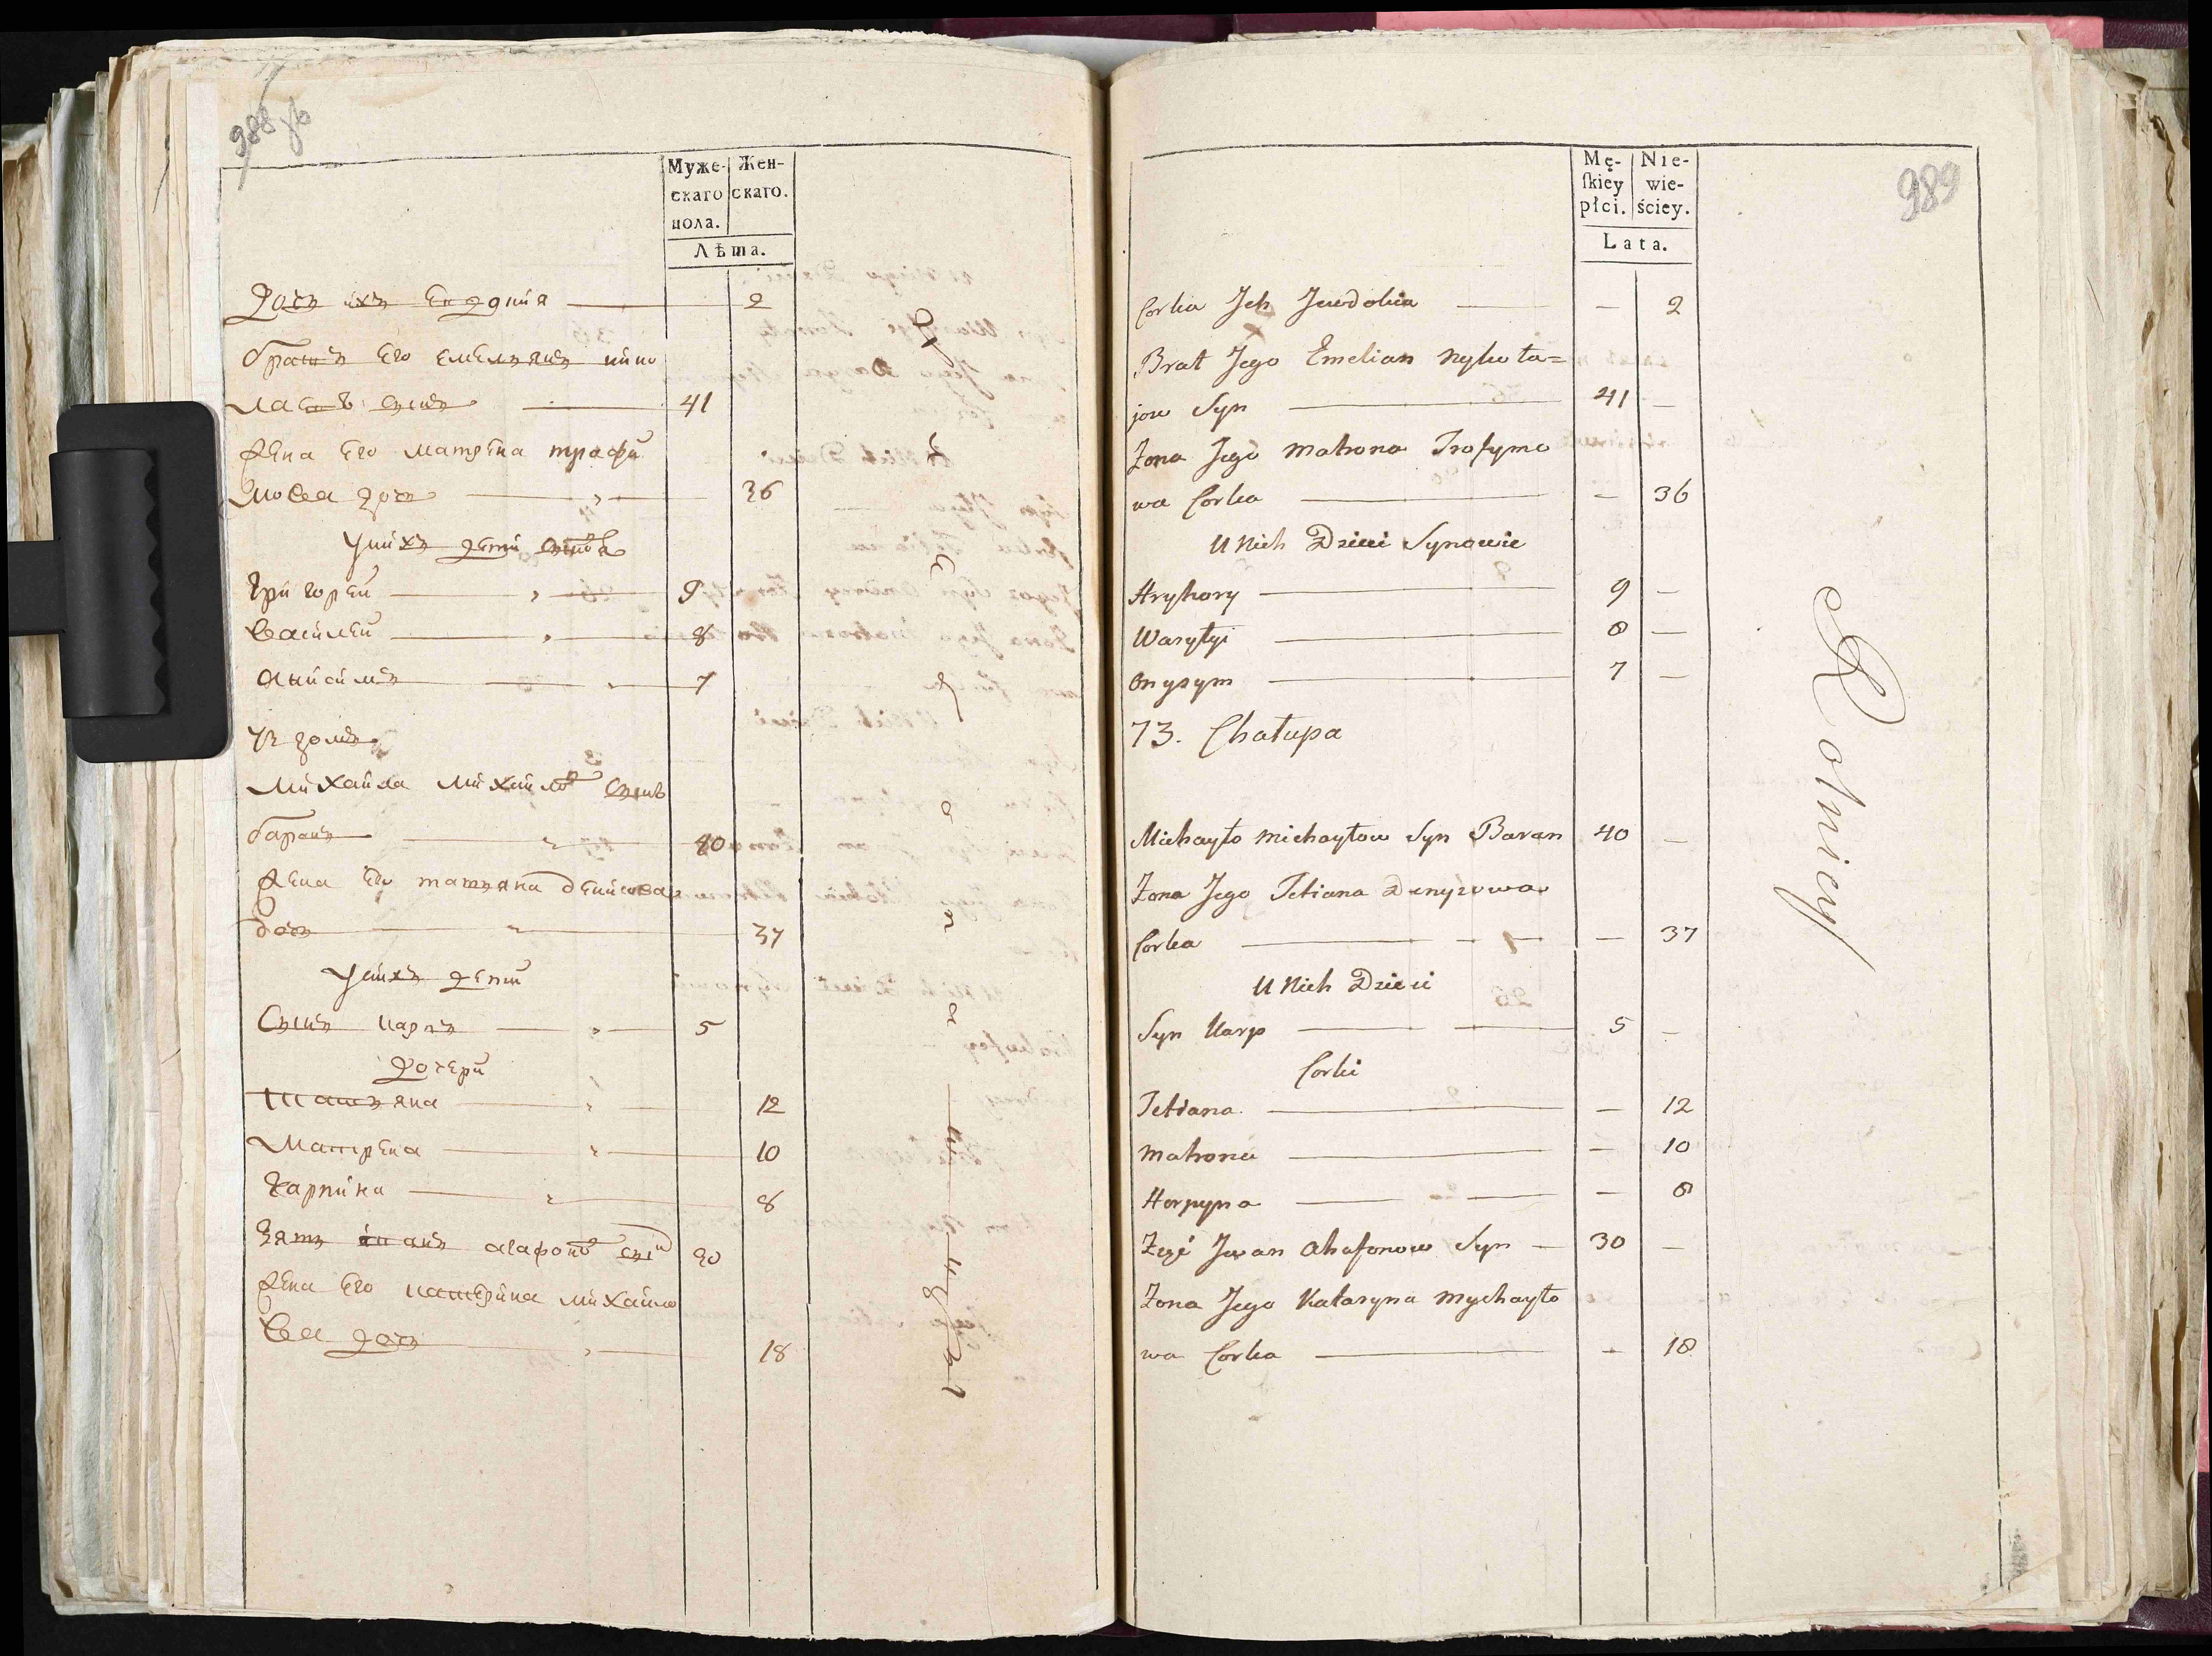 988 об
Муже-
скаго
пола.
Жен-
скаго.
Лѣта.
Дочъ ихъ Евдокия 2
братъ Его емельянъ нико
лаевъ сынъ 41
жена Его матрена трофи
мова дочъ 36
Унихъ дети сыновя
Григорей 9
Василей 8
Анисимъ 7
73 домъ
Михайла Михайловъ Сынъ
баранъ 40
жена Его татьяна денисова
дочъ 37
Унихъ дети
Сынъ карпъ 5
Дочери
Татьяна 12
Матрена 10
Гарпина 8
Зять иванъ агафоновъ сынъ 30
жена Его катерина михайло
ва дочъ 18
989
Mę-
ſkiey
płci.
Nie-
wie-
ściey.
Lata.
Corka Jch Jewdokia — 2
Brat Jego Emelian Nykoła=
jow Syn 41 —
Zona Jego Matrona Trofymo
wa Corka — 36
U Nich Dzieci Synowie
Hryhory 9 —
Wasyłyi 8 —
Onysym 7 —
73. Chałupa
Michayło Michayłow Syn Baran 40 —
Zona Jego Tetiana Denysowa
Corka — 37
U Nich Dzieci
Syn Karp 5 —
Corki
Tetiana — 12
Matrona — 10
Horpyna — 8
Zięć Jwan Ahafonow Syn 30 —
Zona Jego Kataryna Mychayło
wa Corka — 18
Rolnicy